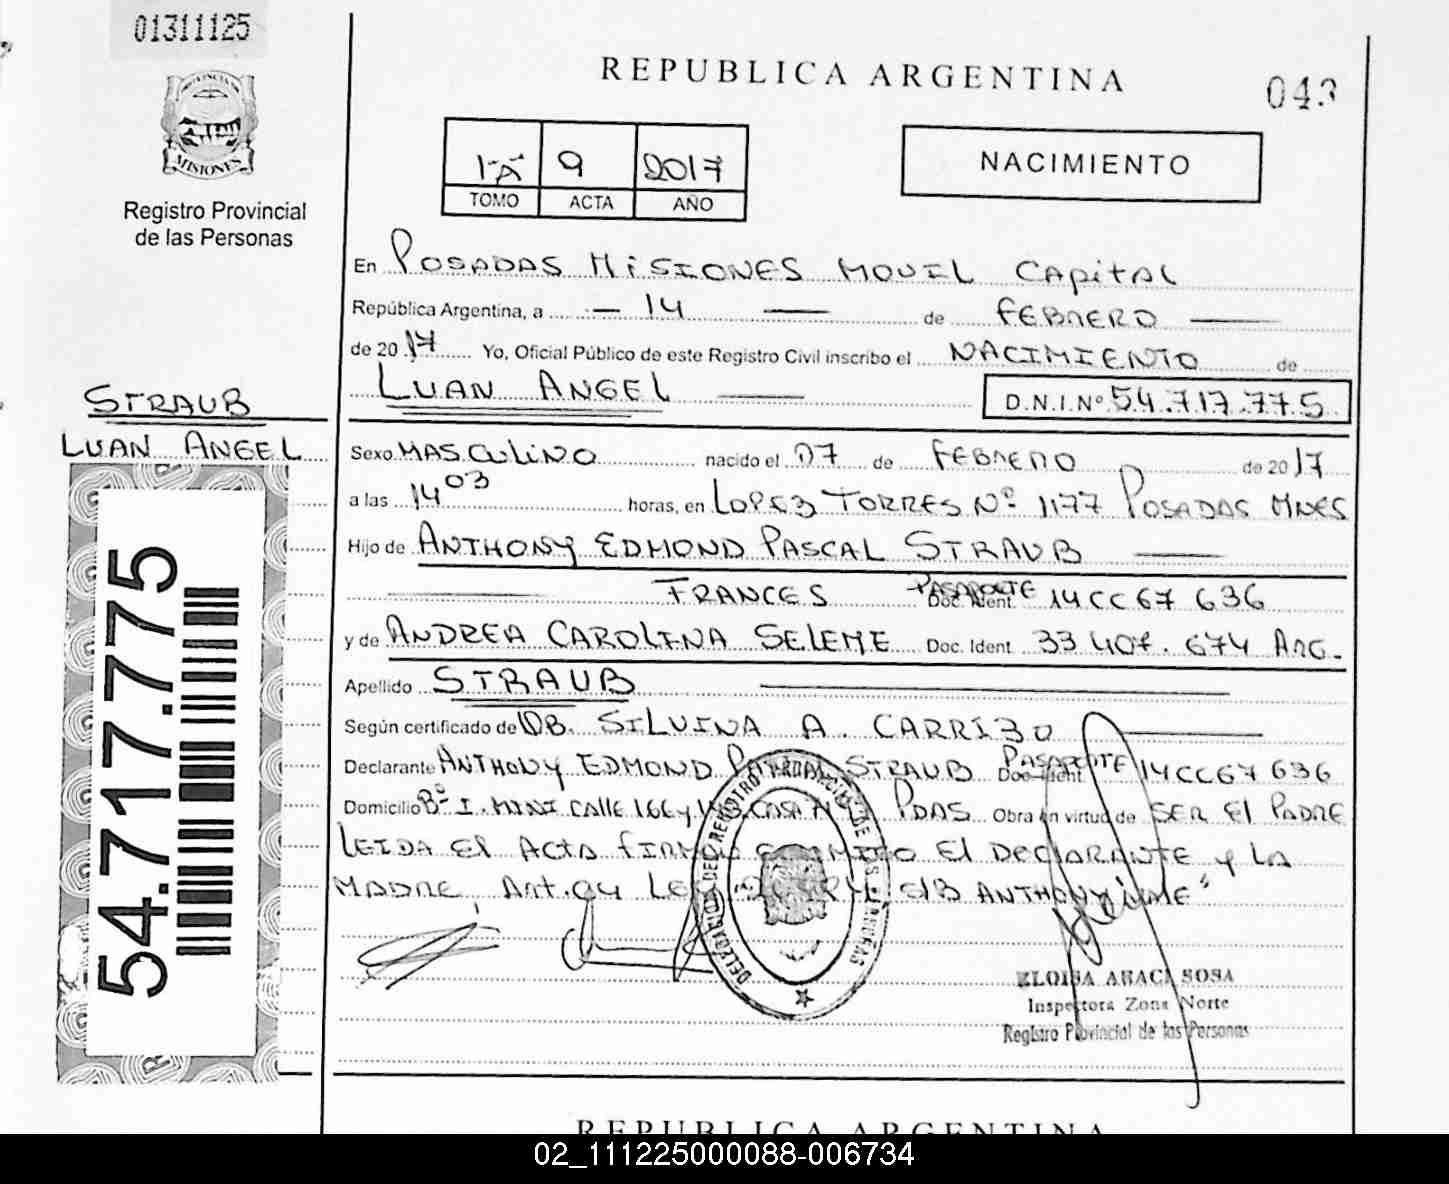 01311125
PROVINCIA
MISIONES
Registro Provincial
de las Personas
REPUBLICA ARGENTINA
043
9 2017
TOMO ACTA AÑO
NACIMIENTO
En POSADAS MISIONES MOVIL CAPITAL
República Argentina, a — 14 — de FEBRERO —
de 2017 Yo, Oficial Público de este Registro Civil inscribo el NACIMIENTO de
LUAN ANGEL — D.N.I.Nº 54.717.775
STRAUB
LUAN ANGEL
54.717.775
Sexo MASCULINO nacido el 07 de FEBRERO de 2017
a las 14 03 horas, en LOPEZ TORRES Nº 1177 POSADAS MNES
Hijo de ANTHONY EDMOND PASCAL STRAUB —
— FRANCES PASAPORTE Doc. Ident. 14CC67 636
y de ANDREA CAROLINA SELEME Doc. Ident. 33 407. 674 ARG.
Apellido STRAUB —
Según certificado de SILVINA A. CARRIZO —
Declarante ANTHONY EDMOND PASCAL STRAUB PASAPORTE Doc. Ident. 14CC67 636
Domicilio Bº I. MINI CALLE 166 y CASA Nº PDAS Obra en virtud de SER El PADRE
LEIDA El ACTA FIRMAN CONMIGO El DECLARANTE y LA
MADRE Art. ANTHONY
ELOISA ARACI SOSA
Inspectora Zona Norte
Registro Provincial de las Personas
REPUBLICA ARGENTINA
02_111225000088-006734